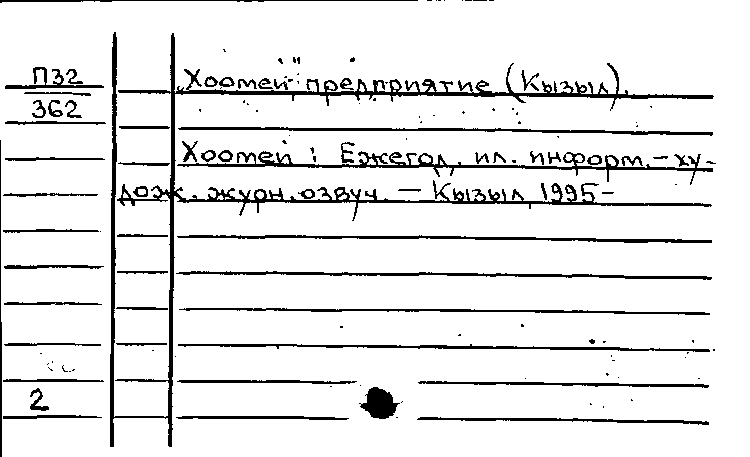 П32
362
„Хоомей“, предприятие (Кызыл).
Хоомей : Ежегод. ил. информ.-ху-
дож. журн. озвуч. — Кызыл, 1995-
2